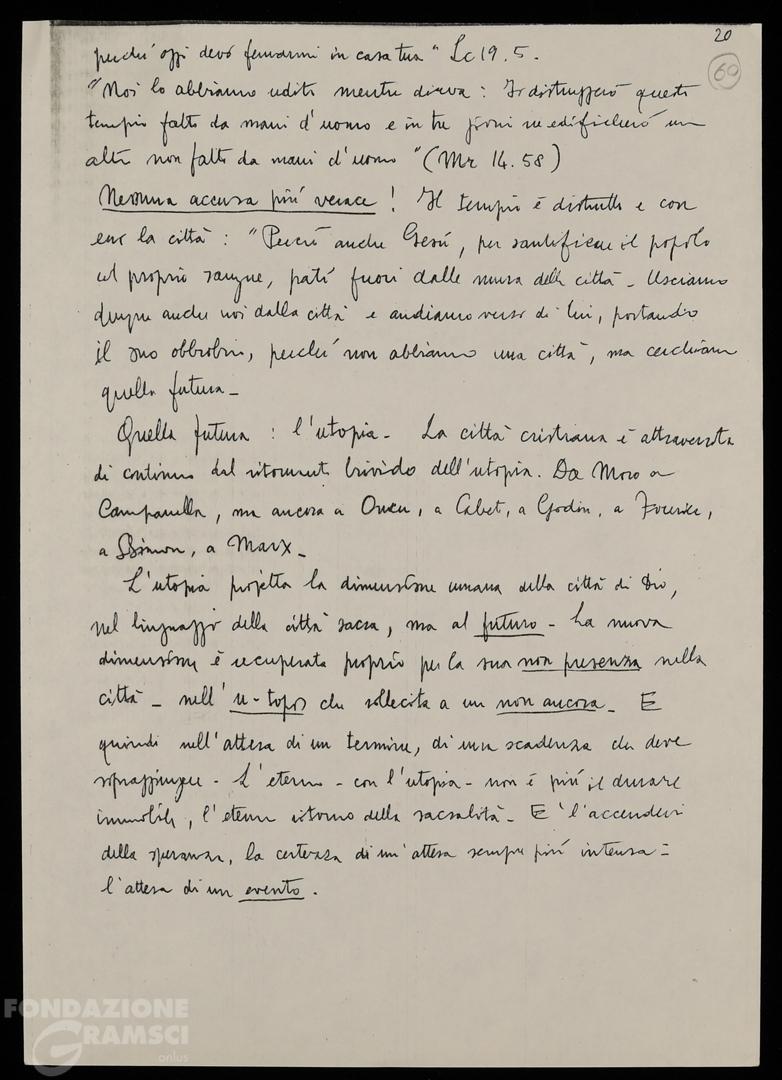 20
60
perché oggi devo fermarmi in casa tua" Lc 19.5.
"Noi lo abbiamo udito mentre diceva: Io distruggerò questo
tempio fatto da mani d'uomo e in tre giorni ne edificherò un
altro non fatto da mani d'uomo" (Mr 14.58)
Nessuna accusa più verace! Il tempio è distrutto e con
esso la città: "Perciò anche Gesù, per santificare il popolo
col proprio sangue, patì fuori dalle mura della città - Usciamo
dunque anche noi dalla città e andiamo verso di lui, portando
il suo obbrobrio, perché non abbiamo una città, ma cerchiamo
quella futura -
Quella futura: l'utopia - La città cristiana è attraversata
di continuo dal ritornante brivido dell'utopia. Da Moro a
Campanella, ma ancora a Owen, a Cabet, a Godin, a Fourier,
a Simon, a Marx -
L'utopia projetta la dimensione umana della città di Dio,
nel linguaggio della città sacra, ma al futuro - La nuova
dimensione è recuperata proprio per la sua non presenza nella
città - nell'u-topos che sollecita a un non ancora - E
quindi nell'attesa di un termine, di una scadenza che deve
sopraggiungere - L'eterno - con l'utopia - non è più il durare
immobile, l'eterno ritorno della sacralità - E' l'accendersi
della speranza, la certezza di un'attesa sempre più intensa =
l'attesa di un evento.
FONDAZIONE
GRAMSCI
onlus